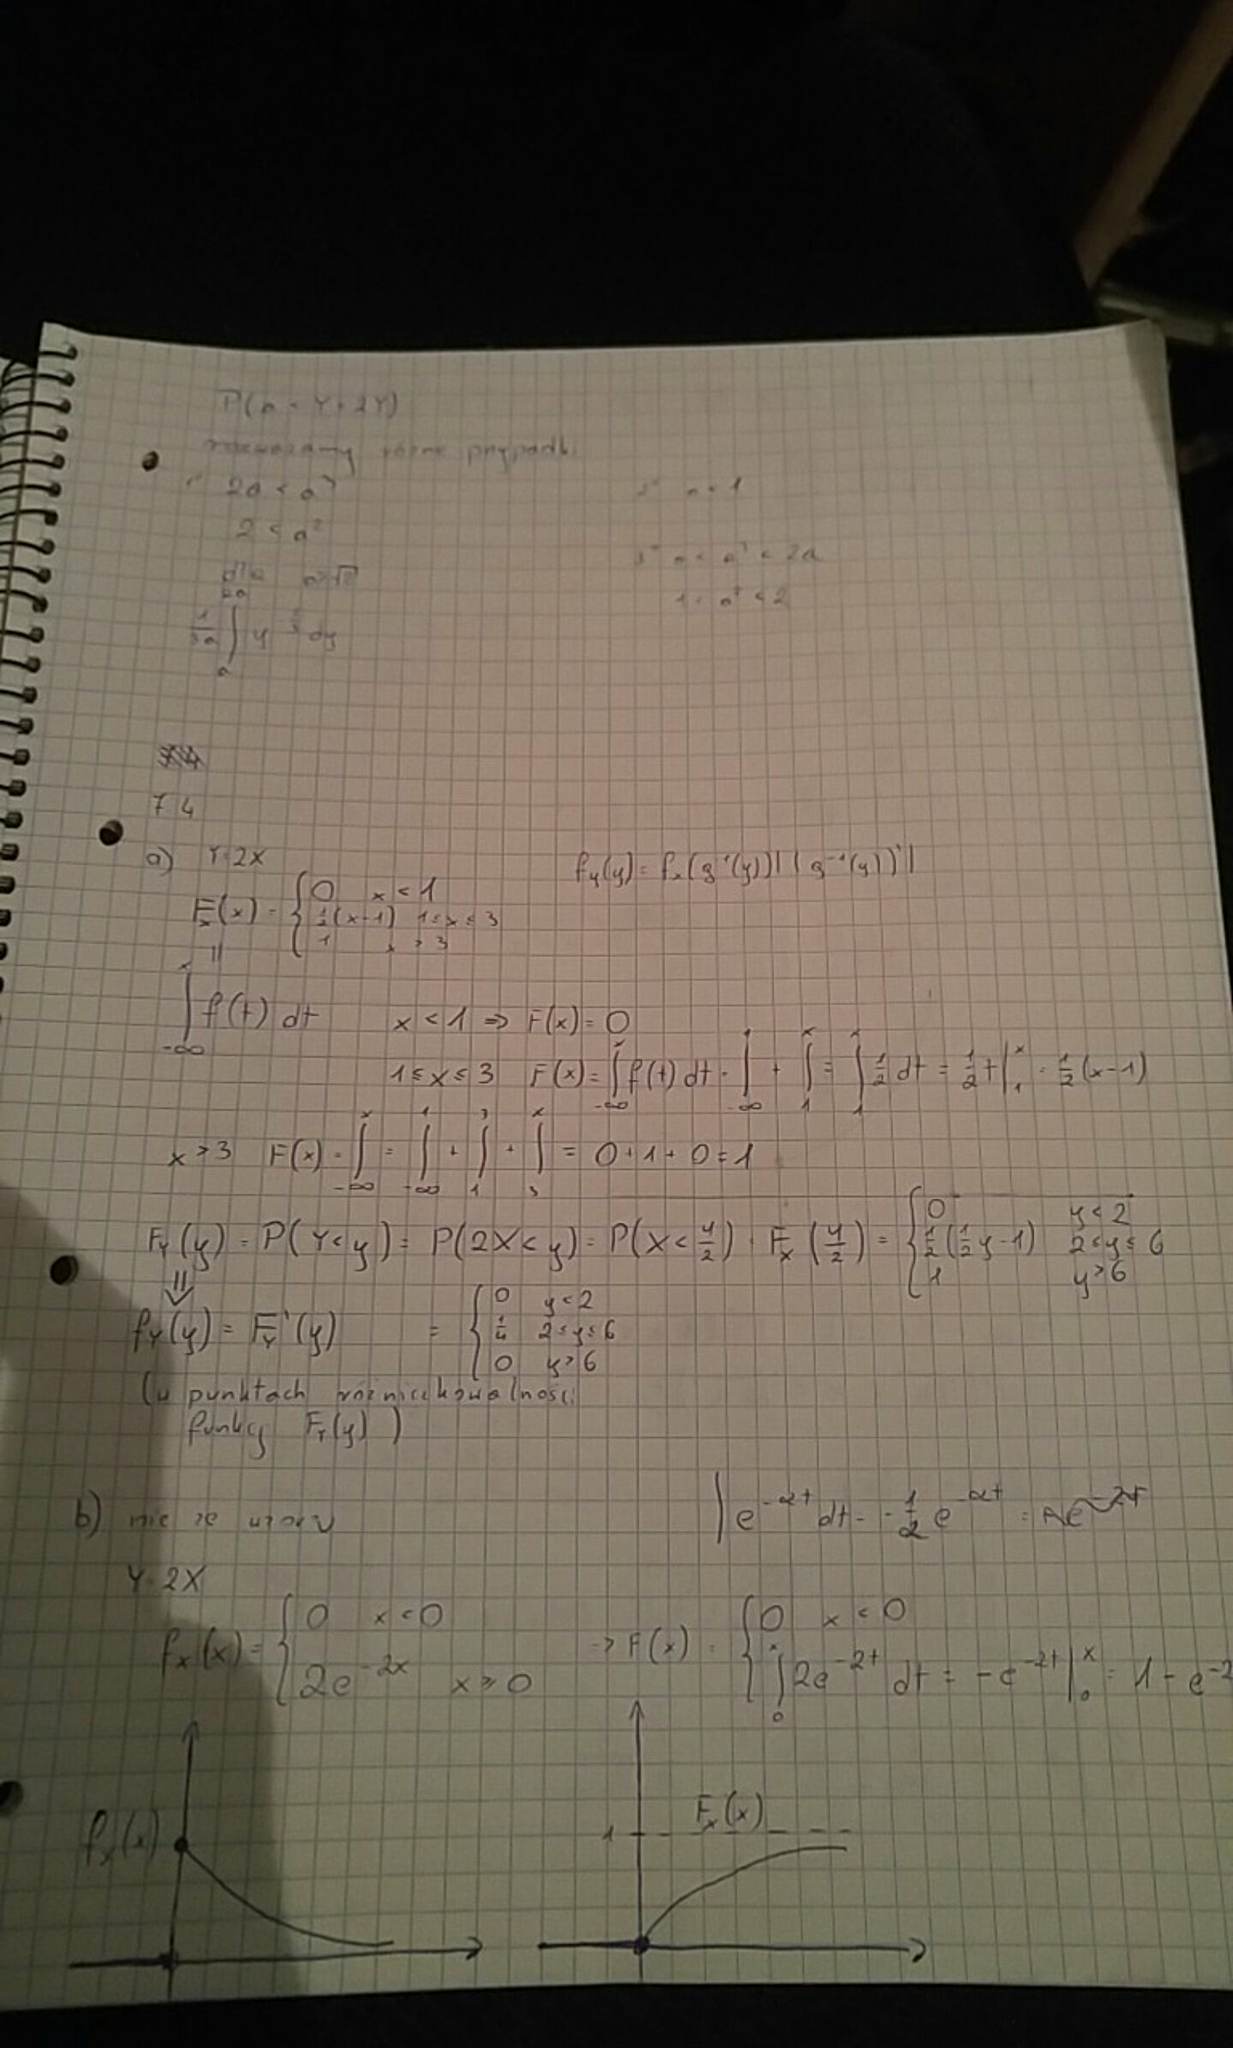 P(a < Y < 2Y)
rozważamy różne przypadki
2a < a³
2 < a²
dla a>√2
1/3a ∫ₐ²ᵃ y dy
a < 1
3° a < a³ < 2a
1 < a² < 2
7.4
a) Y=2X f_Y(y) = f_x(g⁻¹(y))|(g⁻¹(y))'|
F_x(x) = { 0 x < 1
½(x-1) 1≤x≤3
1 x > 3
=
∫_{-∞}^{x} f(t) dt x < 1 ⇒ F(x) = 0
1≤x≤3 F(x) = ∫_{-∞}^{x} f(t) dt = ∫_{-∞}^{1} + ∫_{1}^{x} = ∫_{1}^{x} ½ dt = ½t|_{1}^{x} = ½(x-1)
x > 3 F(x) = ∫_{-∞}^{x} = ∫_{-∞}^{1} + ∫_{1}^{3} + ∫_{3}^{x} = 0+1+0=1
F_Y(y) = P(Y<y) = P(2X<y) = P(X<y/2) = F_X(y/2) = { 0 y<2
½(½y-1) 2≤y≤6
1 y>6
⇓
f_Y(y) = F_Y'(y) = { 0 y<2
¼ 2≤y≤6
0 y>6
(w punktach różniczkowalności
funkcji F_Y(y))
b) nie ze wzoru ∫e^{-2t} dt = -½ e^{-2t}
Y=2X
f_X(x) = { 0 x<0
2e^{-2x} x≥0
⇒ F(x) = { 0 x < 0
∫_{0}^{x} 2e^{-2t} dt = -e^{-2t}|_{0}^{x} = 1-e^{-2
f_x(x)
1 F_x(x)